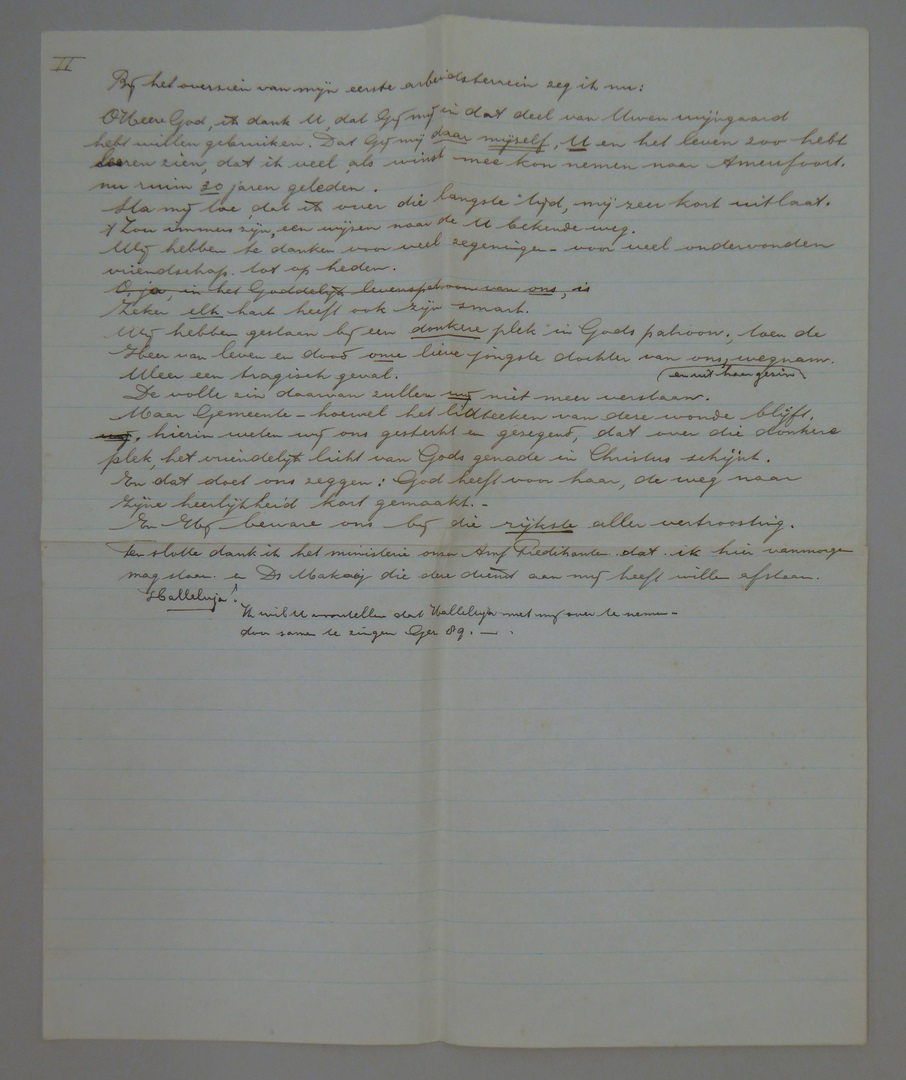 II
Bij het overzien van mijn eerste arbeidsterrein zeg ik nu:
O Heere God, ik dank U, dat Gij mij in dat deel van Uwen wijngaard
hebt willen gebruiken. Dat Gij mij daar mijzelf, U en het leven zoo hebt
leeren zien, dat ik veel als winst mee kon nemen naar Amersfoort.
nu ruim 30 jaren geleden.
Sta mij toe, dat ik over die langste tijd, mij zeer kort uitlaat.
't Zou immers zijn, een wijzen naar de U bekende weg.
Wij hebben te danken voor veel zegeningen - voor veel ondervonden
vriendschap. tot op heden.
O, ja, in het Goddelijk levenspatroon van ons, is
Zeker elk hart heeft ook zijn smart.
Wij hebben gestaan bij een donkere plek in Gods patroon, toen de
Heer van leven en dood onze lieve jongste dochter van ons, wegnam.
en uit haar gezin
Weer een tragisch geval.
De volle zin daarvan zullen wij niet meer verstaan.
Maar Gemeente - hoewel het lidteeken van deze wonde blijft,
wij. hierin weten wij ons gesterkt en gezegend, dat over die donkere
plek, het vriendelijk licht van Gods genade in Christus schijnt.
En dat doet ons zeggen: God heeft voor haar, de weg naar
Zijne heerlijkheid kort gemaakt.-
En Hij beware ons bij die rijkste aller vertroosting.
Ten slotte dank ik het ministerie onzer Amf Predikanten dat ik hier vanmorgen
mag staan. en Ds Makaaij die deze dienst aan mij heeft willen afstaan.
Halleluja!
Ik wil U voorstellen dat Halleluja met mij over te nemen -
door samen te zingen Gez 89. - .